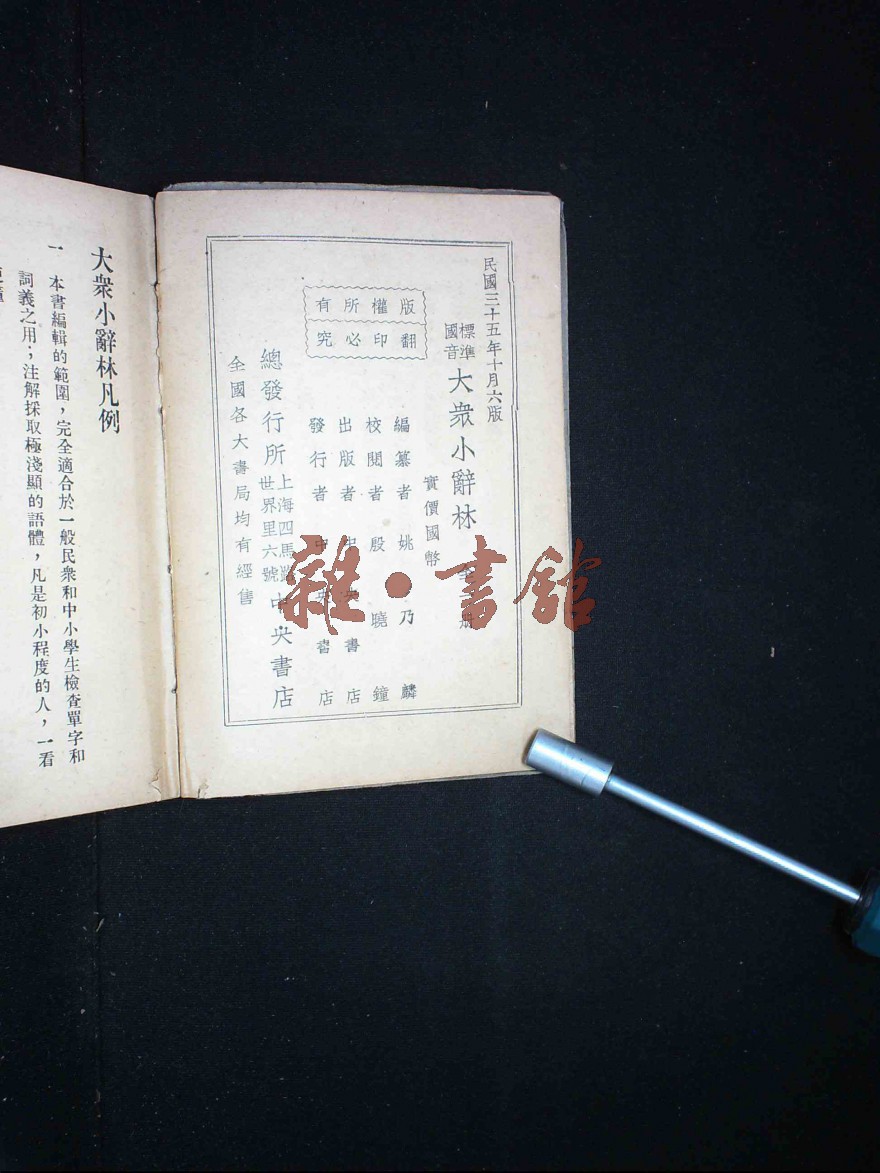 民國三十五年十月六版
標準國音 大衆小辭林 全一册
實價國幣
版權所有
翻印必究
編纂者 姚乃麟
校閱者 殷曉鐘
出版者 中央書店
發行者 中央書店
總發行所 上海四馬路世界里六號 中央書店
全國各大書局均有經售
大衆小辭林凡例
一 本書編輯的範圍，完全適合於一般民衆和中小學生檢查單字和
詞義之用；注解採取極淺顯的語體，凡是初小程度的人，一看
雜·書館